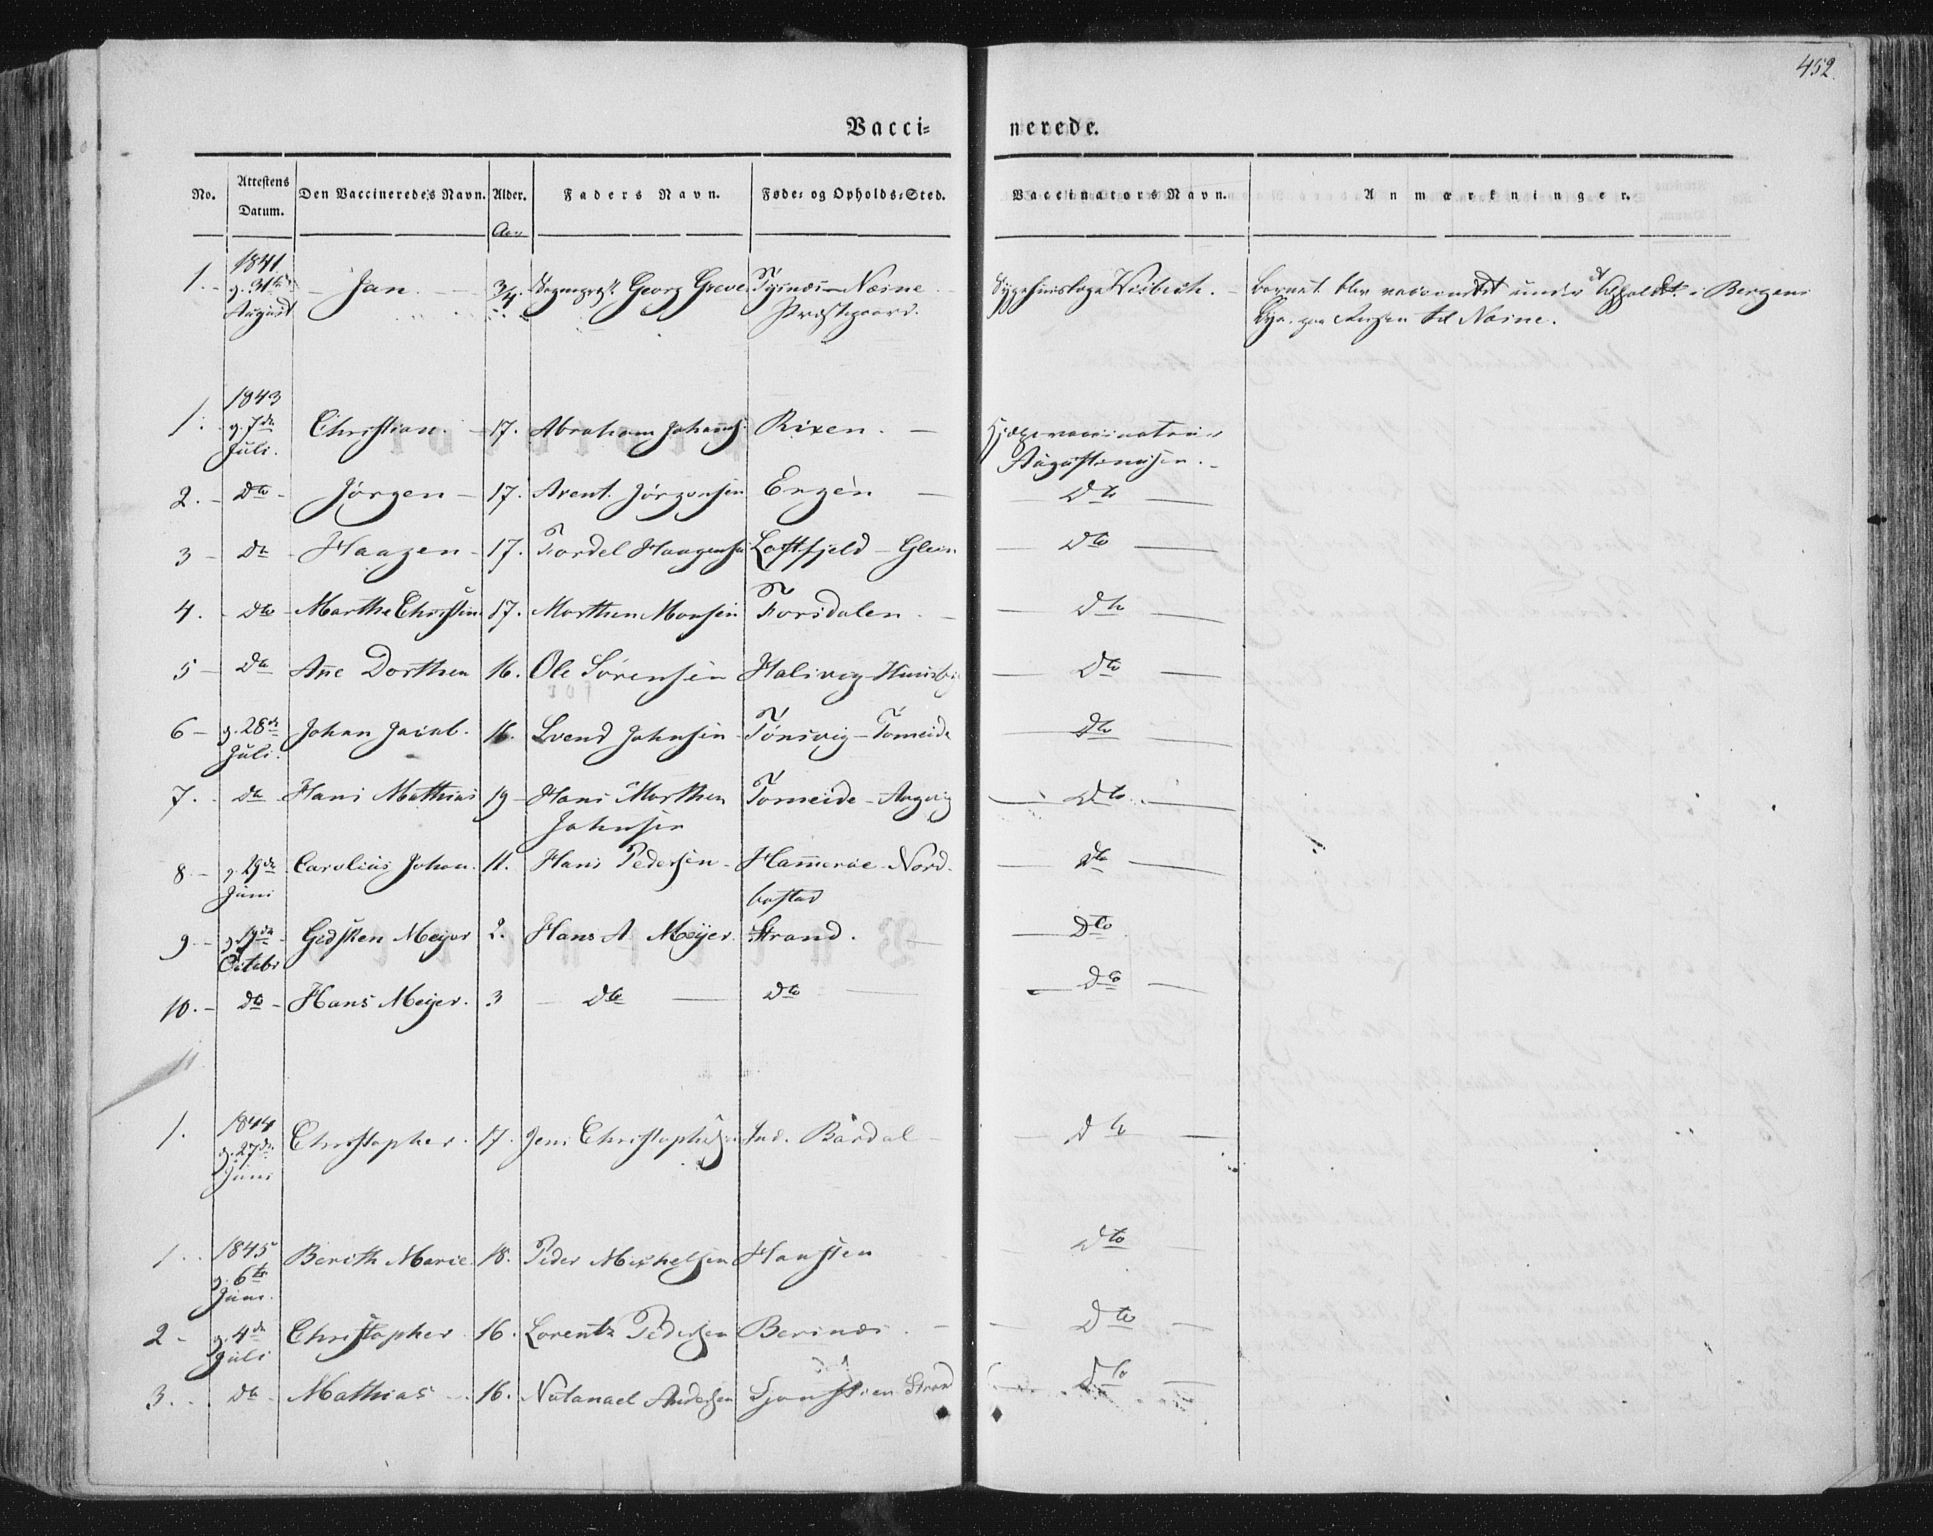 452.
Vacci= nerede.
No. Attestens Datum. Den Vaccineredes Navn. Alder. Faders Navn. Føde= og Opholds=Sted. Vaccinators Navn. Anmærkninger.
Aar
1. 1841 g. 31te August Jan. 3/4. Sognepræst Georg Greve Næsne Præstegaard. Sygehuuslæge Wisbech. Barnet blev vaccineret under et Ophold i Bergens
Bye paa Reisen til Næsne.
1. 1843 g. 7de Juli. Christian. 17. Abraham Johans. Rixen. Hjælpevaccinatør
Augustinusen.
2. Dto Jørgen 17. Arent Jørgensen Engen Dto
3 Dto Haagen 17. Tordel Haagensen Loftfjeld - Glein Dto
4. Dto Marthe Christine 17. Morthen Monsen Forsdalen. Dto
5 Dto Añe Dorthea 16. Ole Sørensen Halsvig Dto
6 g. 28de Juli. Johan Jacob. 16. Svend Johnsen Tønsvig - Tomeide Dto
7. Dto Hans Mathias 19 Hans Morthen Tomeide - Angvig Dto
Johnsen
8 g. 19de Juni Carolius Johan. 11. Hans Pedersen Ham̃erøe Nord- Dto
bostad
9. g. 19de Octobr Gidsken Meyer 2. Hans A Meijer. Strand. Dto
10. Dto Hans Meijer. 3 Dto Dto Dto
11
1. 1844 g. 27de Juni Christopher. 17. Jens Christophersen Ind. Bardal Dto
1. 1845 g. 6te Juni. Berith Marie 18. Peder Michelsen Hansten Dto
2 g. 4de Juli Christopher 16. Lorentz Pedersen Berinæs. Dto
3. Dto Mathias 16. Natanael Andersen Strand Dto